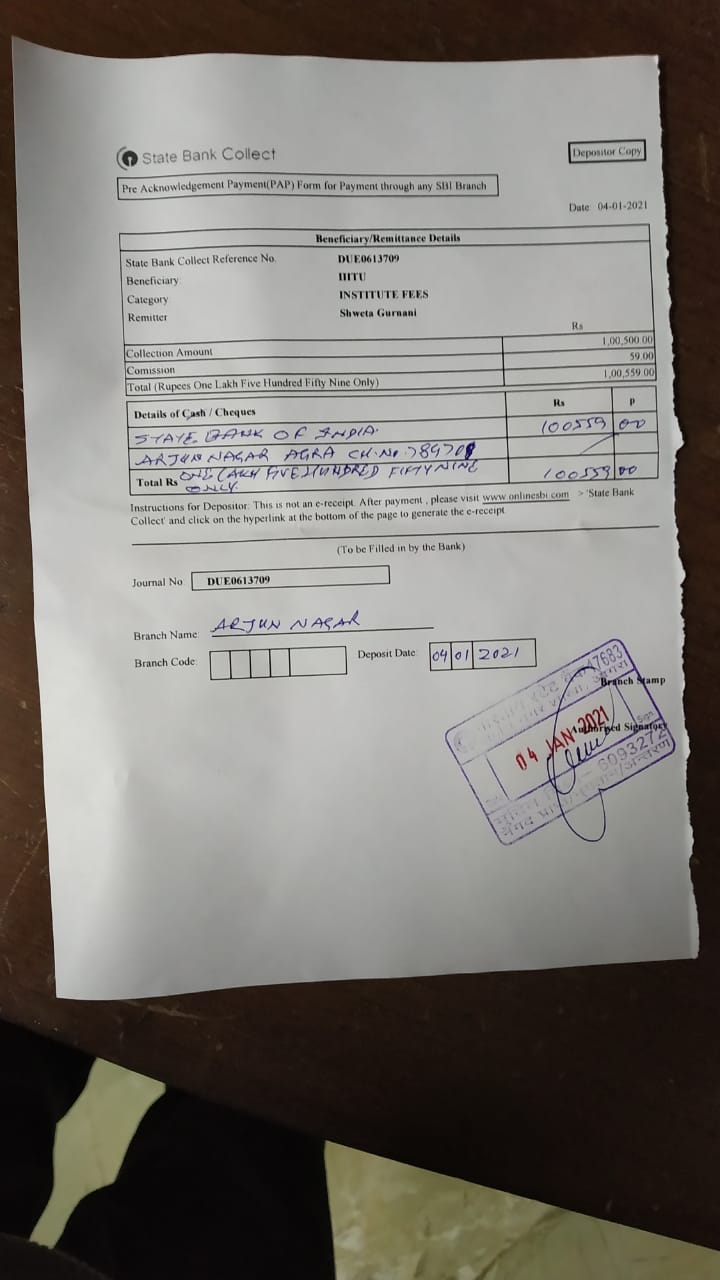 State Bank Collect
Depositor Copy
Pre Acknowledgement Payment(PAP) Form for Payment through any SBI Branch
Date: 04-01-2021
Beneficiary/Remittance Details
State Bank Collect Reference No. DUE0613709
Beneficiary:
Category INSTITUTE FEES
Remitter Shweta Gurnani
Rs
Collection Amount 1,00,500.00
Comission 59.00
Total (Rupees One Lakh Five Hundred Fifty Nine Only) 1,00,559.00
Details of Cash / Cheques Rs P
STATE BANK OF INDIA. 100559 00
ARJUN NAGAR AGRA CH.No.
Total Rs ONE LAKH FIVE HUNDRED FIFTY NINE ONLY. 100559 00
Instructions for Depositor: This is not an e-receipt. After payment , please visit www.onlinesbi.com > 'State Bank
Collect' and click on the hyperlink at the bottom of the page to generate the e-receipt
(To be Filled in by the Bank)
Journal No DUE0613709
Branch Name: ARJUN NAGAR
Branch Code: Deposit Date: 04 01 2021
Branch Stamp
04 JAN 2021
Authorised Signatory